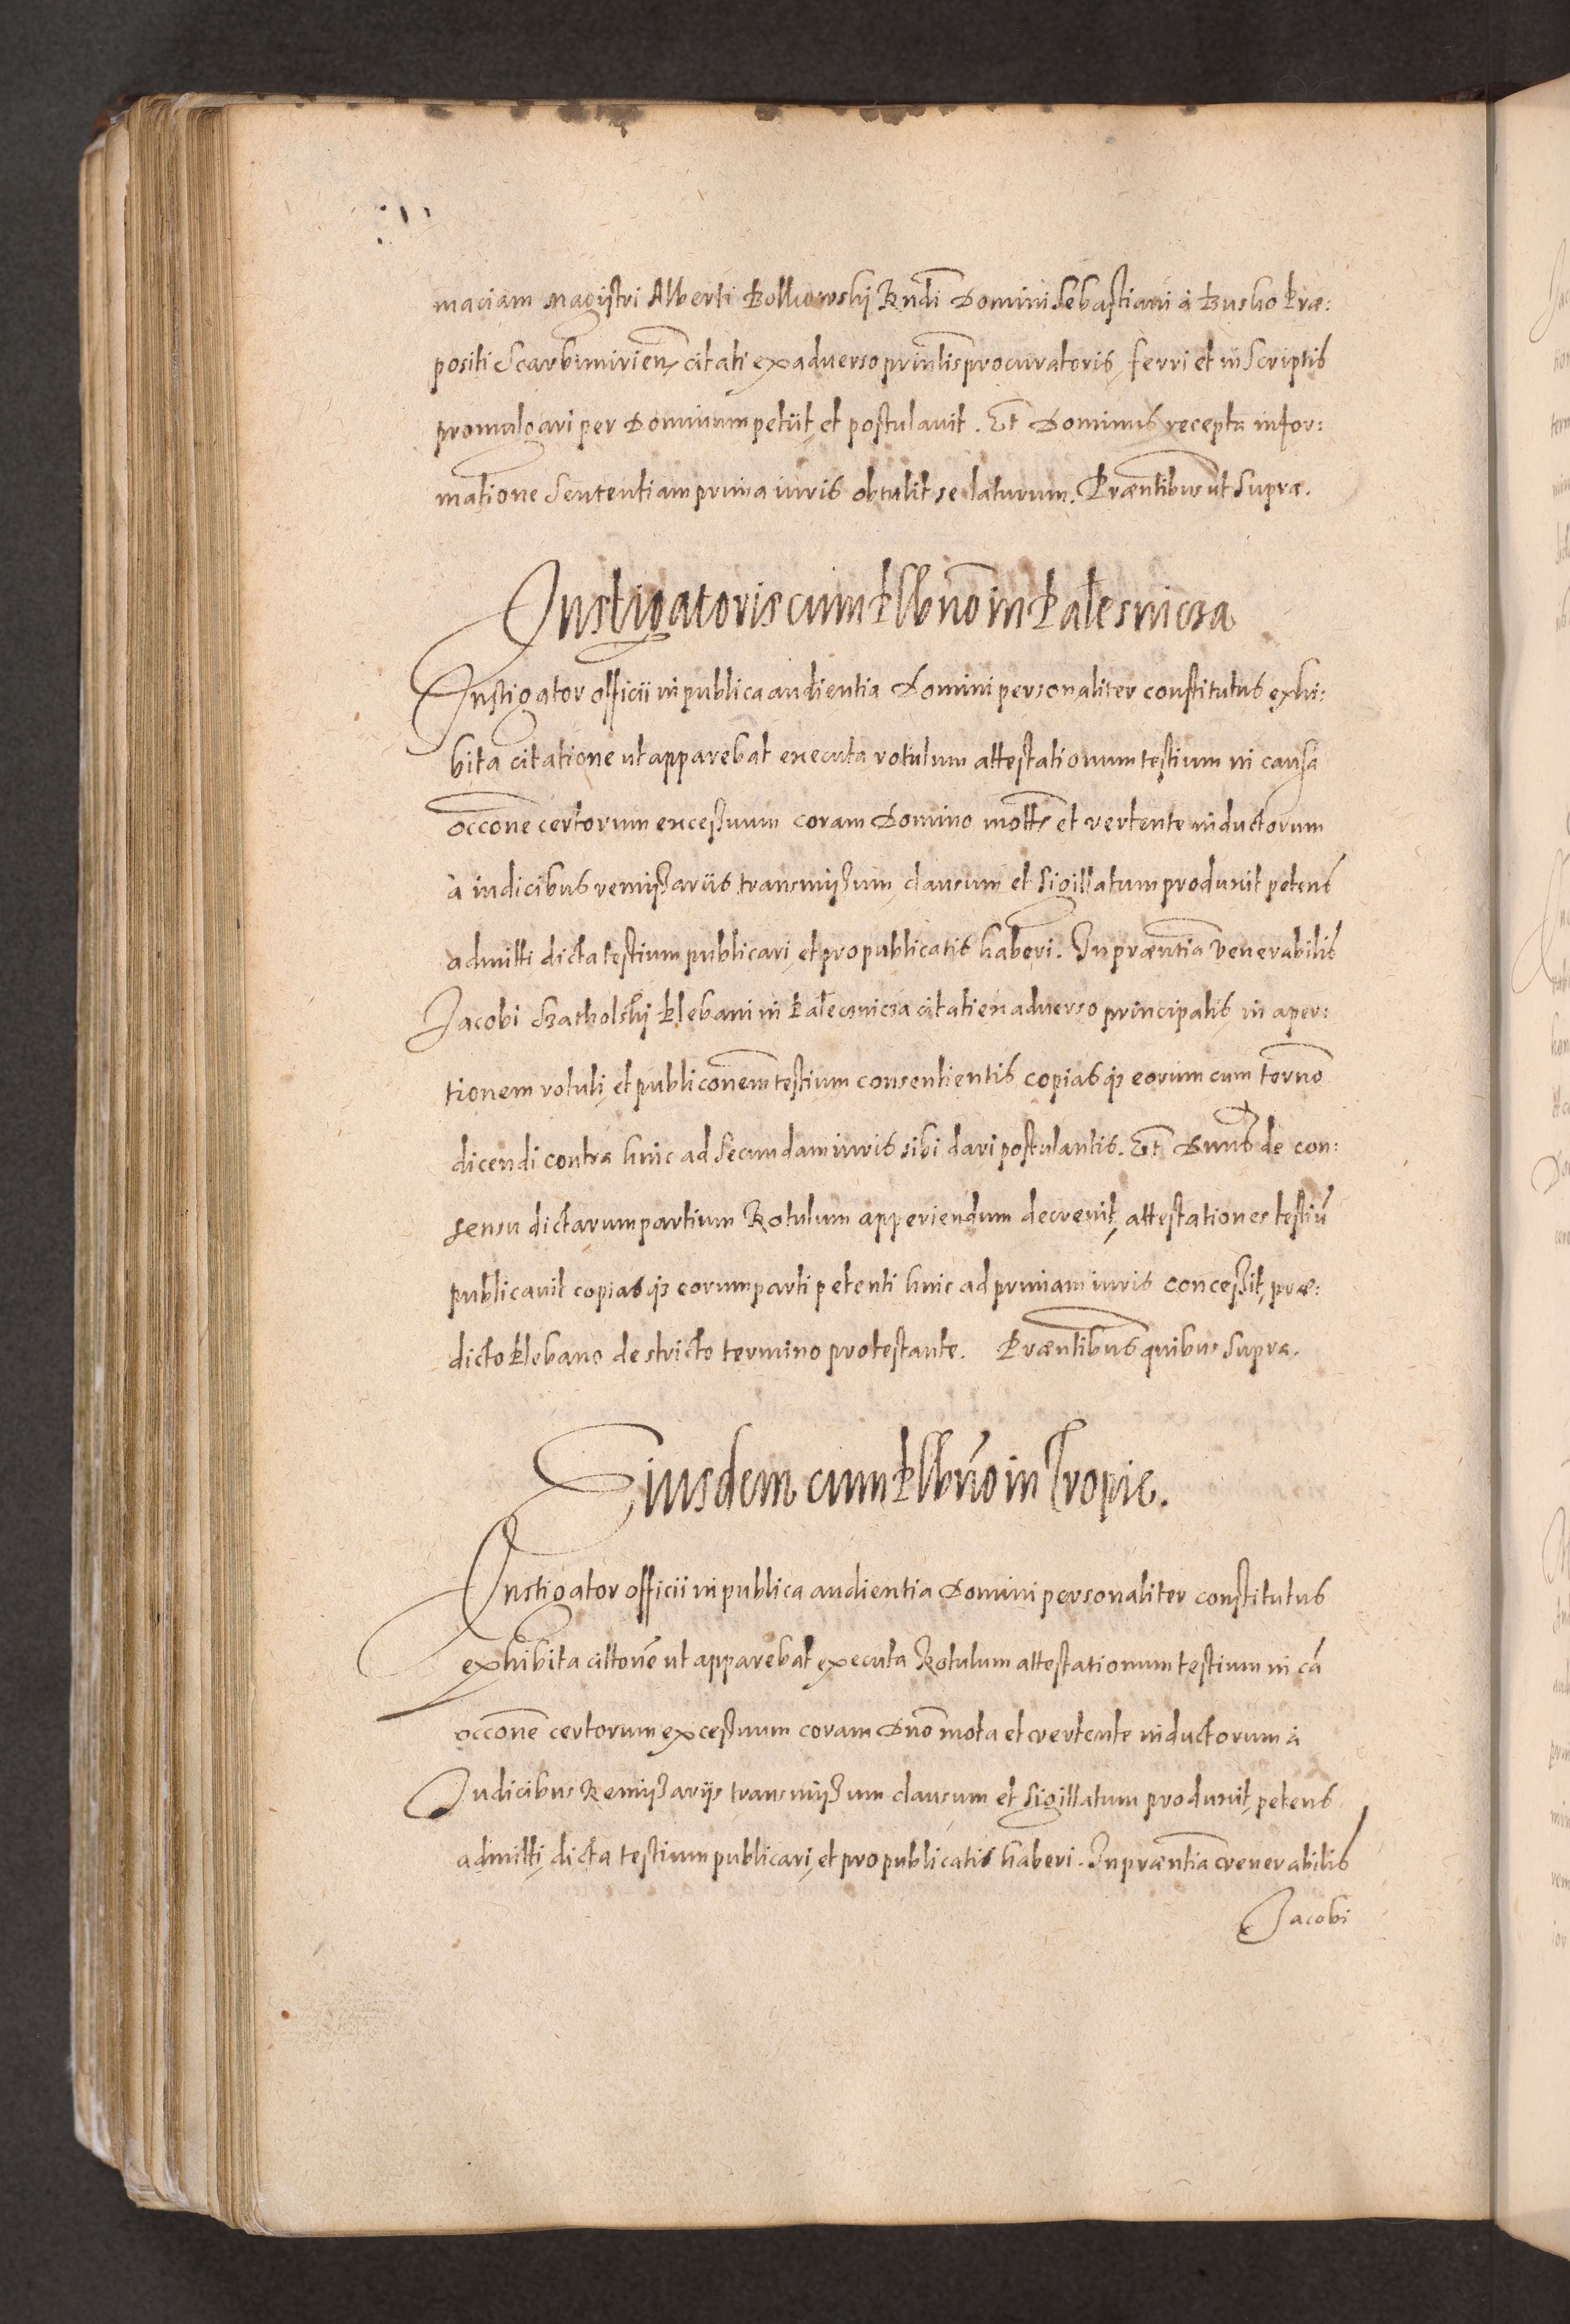 maciam Magistri Alberti Bolkowskij Rndi Domini Sebastiani à Busko Præ:
positi Scarbimirien citati ex adverso prinlis procuratoris, ferri et in Scriptis
promulgari per Dominum petiit, et postulavit. Et Dominus recepta infor:
matione Sententiam prima iuris obtulit se laturum. Præntibus ut Supra.
Instigatoris cum Plbno in Palesnicza
Instigator officii in publica audientia Domini personaliter constitutus exhi:
bita citatione ut apparebat executa rotulum attestationum testium in causa
occone certorum excessuum coram Domino mott et vertente inductorum
à iudicibus remissariis transmissum, clausum et Sigillatum produxit petens
admitti dicta testium publicari, et pro publicatis haberi. In præntia Venerabilis
Jacobi Plebani in Palecznicza citati ex adverso principalis, in aper:
tionem rotuli, et publiconem testium consentientis, copias q3 eorum cum termo
dicendi contra hinc ad Secundam iuris sibi dari postulantis. Et Dnus de con:
sensu dictarum partium Rotulum apperiendum decrevit, attestationes testiũ
publicavit copias q3 eorum parti petenti hinc ad primam iuris concessit, præ:
dicto Plebano de stricto termino protestante. Præntibus quibus Supra.
Eiusdem cum Plbno in Tropie.
Instigator officii in publica audientia Domini personaliter constitutus
exhibita cittone ut apparebat executa Rotulum attestationum testium in cã
occone certorum excessuum coram Dno mota et vertente inductorum à
Iudicibus Remissarijs transmissum clausum et Sigillatum produxit, petens
admitti, dicta testium publicari, et pro publicatis haberi. In præntia venerabilis
Jacobi